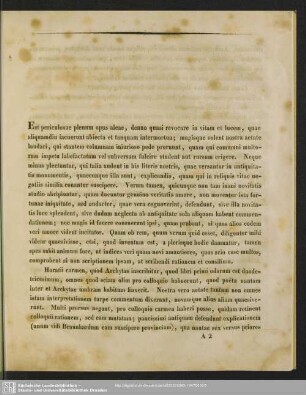 Est periculosae plenum opus aleae, denuo quasi revocare in vitam et lucem, quae
aliquamdiu iacuerunt abiecta et tanquam intermortua; magisque solent nostra aetate
laudari, qui stantem columnam iniuriose pede prorunt, quam qui commoti multorum
impetu labefactatam vel universam fulcire student aut ruinam erigere. Neque
minus plectuntur, qui talia audent in his literis nostris, quae versantur in antiquitatis
monumentis, quaecunque illa sunt, explicandis, quam qui in reliquis vitae negotiis
similia conantur suscipere. Verum tamen, quicunque non tam inani novitatis
studio abripiuntur, quam ducuntur genuino veritatis amore, non moventur ista fortunae
iniquitate, sed audacter, quae vera cognoverint, defendunt, sive illa novitatis
luce splendent, sive dudum neglecta ab antiquitate sola aliquam habent commendationem;
nec magis id facere consueverunt ipsi, quam probant, si quas alios eadem
veri amore videant incitatos. Quam ob rem, quum verum quid esset, diligenter mihi
videor quaesivisse, etsi, quod inventum est, a plerisque hodie damnatur, tamen
spes subit animum fore, ut iudices veri quam novi amantiores, quam satis esse multos,
comprobent si non scriptionem ipsam, at scribendi rationem et consilium.
Horatii carmen, quod Archytas inscribitur, quod libri primi odarum est duodetricesimum,
omnes quod sciam olim pro colloquio habuerunt, quod poëta nautam
inter et Archytae umbram habitum finxerit. Nostra vero aetate tantum non omnes
istam interpretationem turpe commentum dixerunt, novamque alius aliam quaesiverunt.
Multi prorsus negant, pro colloquio carmen haberi posse, quidam retinent
colloquii rationem, sed eam mutatam; paucissimi antiquam defendunt explicationem
(unum vidi Braunhardum eam suscipere provinciam), qua nautae sex versus priores
A 2